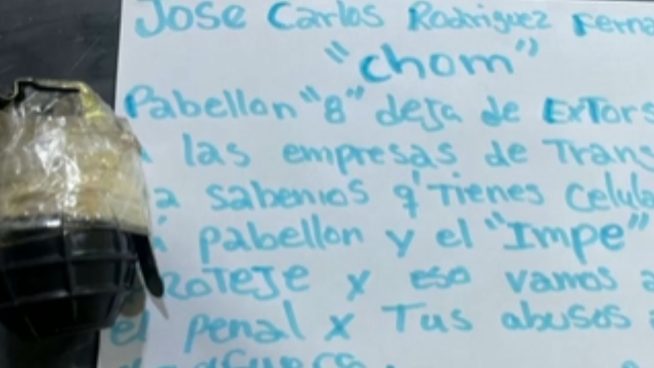 Jose Carlos Rodriguez Ferna
"chom"
Pabellon "8" deja de ExTors
las empresas de Trans
a sabemos q' Tienes Celula
pabellon y el "Impe"
roTeje x eso vamos a
el penal x Tus abusos a